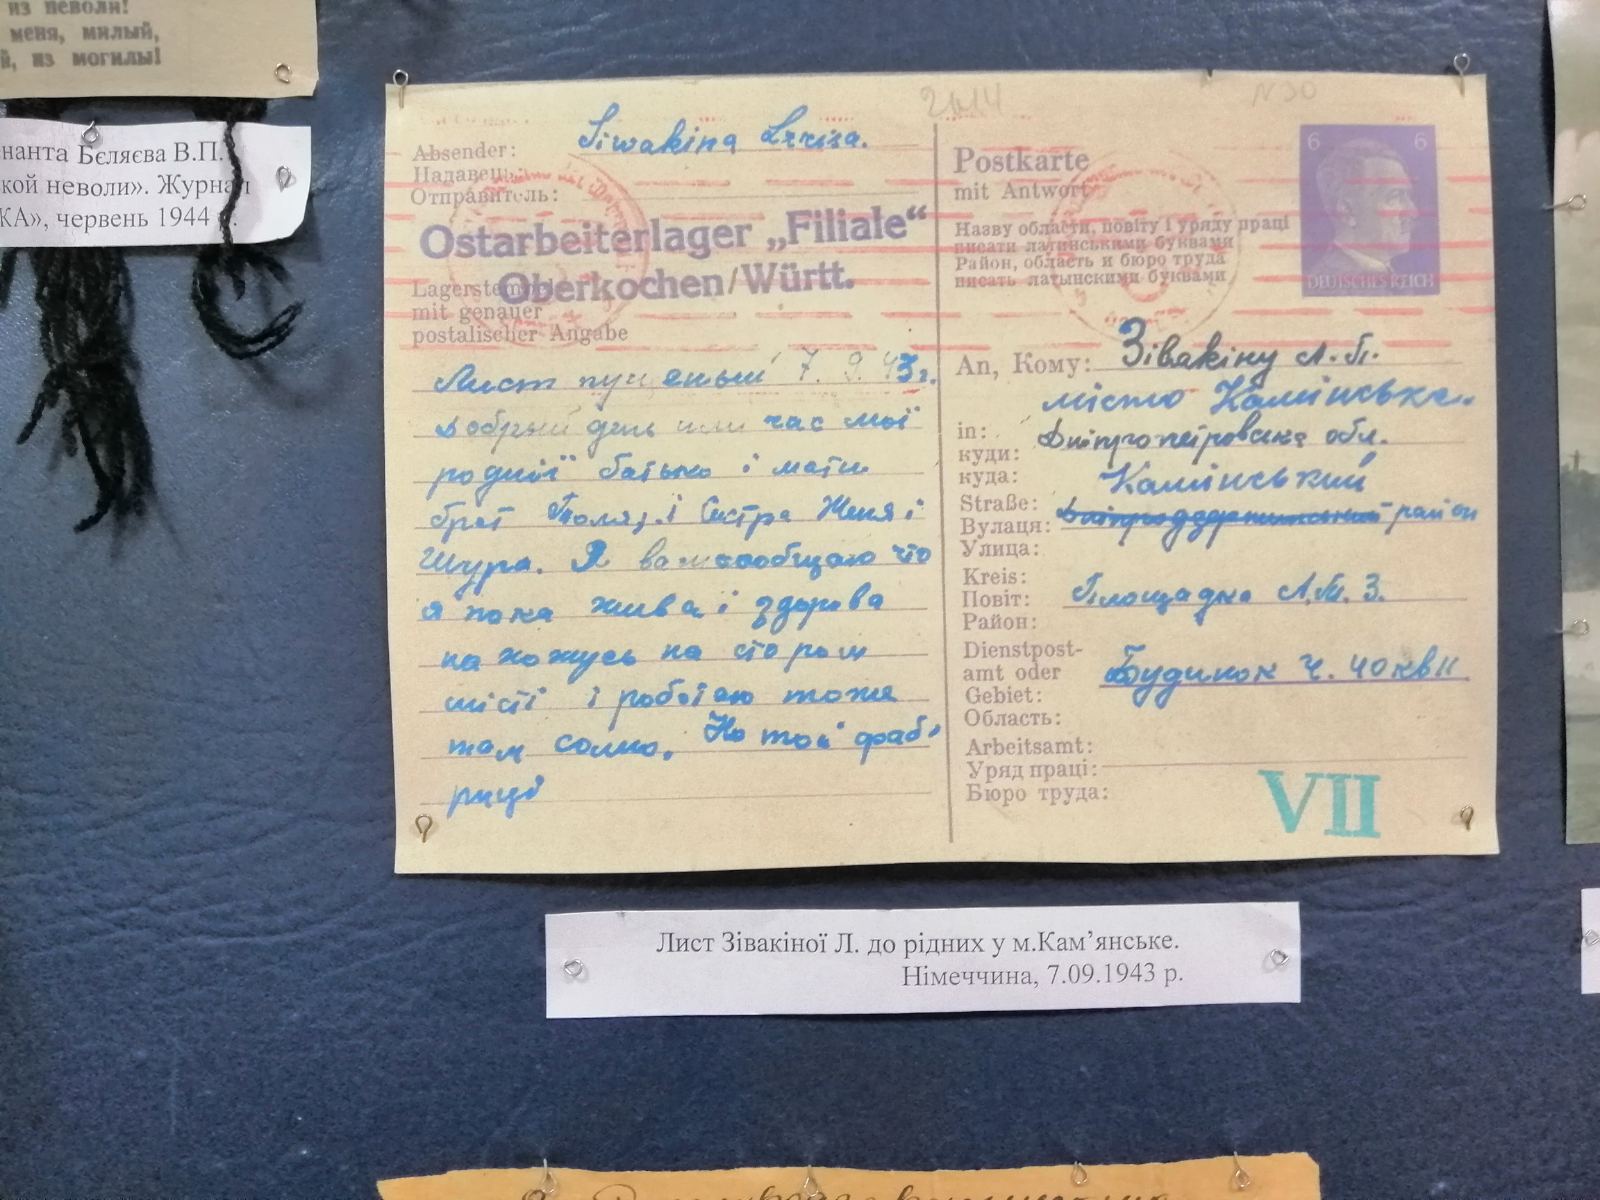 из неволи!
меня, милый,
й, из могилы!
нанта Бєляєва В.П.
ской неволи». Журнал
КА», червень 1944 р.
2614
N30
Siwakina Larisa.
Absender:
Надавець:
Отправитель:
Ostarbeiterlager „Filiale“
Oberkochen/Württ.
Lagerstempel
mit genauer
postalischer Angabe
Лист пущеный 7. 9. 43г.
Добрый день или час мої
родиії батько і мати
брат Толя, і Сестра Женя і
Шура. Я вам сообщаю что
я пока жива і здорова
нахожусь на старом
місті і роботаю тоже
там само. На той фаб-
риці
Postkarte
mit Antwort
Назву области, повіту і уряду праці
писати латинськими буквами
Район, область и бюро труда
писать латынскими буквами
6 6
DEUTSCHES REICH
An, Кому: Зівакіну Л. П.
місто Камінське.
in: Дніпропетровська обл.
куди:
куда: Камінський
Straße:
Вулаця: район
Улица:
Kreis:
Повіт: Площадка Л.М. 3.
Район:
Dienstpost-
amt oder Будинок ч. 40 кв 11
Gebiet:
Область:
Arbeitsamt:
Уряд праці:
Бюро труда:
VII
Лист Зівакіної Л. до рідних у м.Кам’янське.
Німеччина, 7.09.1943 р.